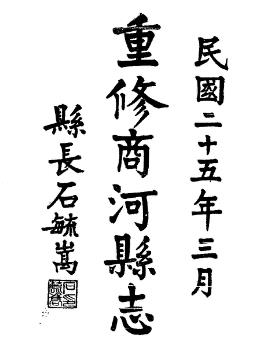 民國二十五年三月
重修商河縣志
縣長石毓嵩